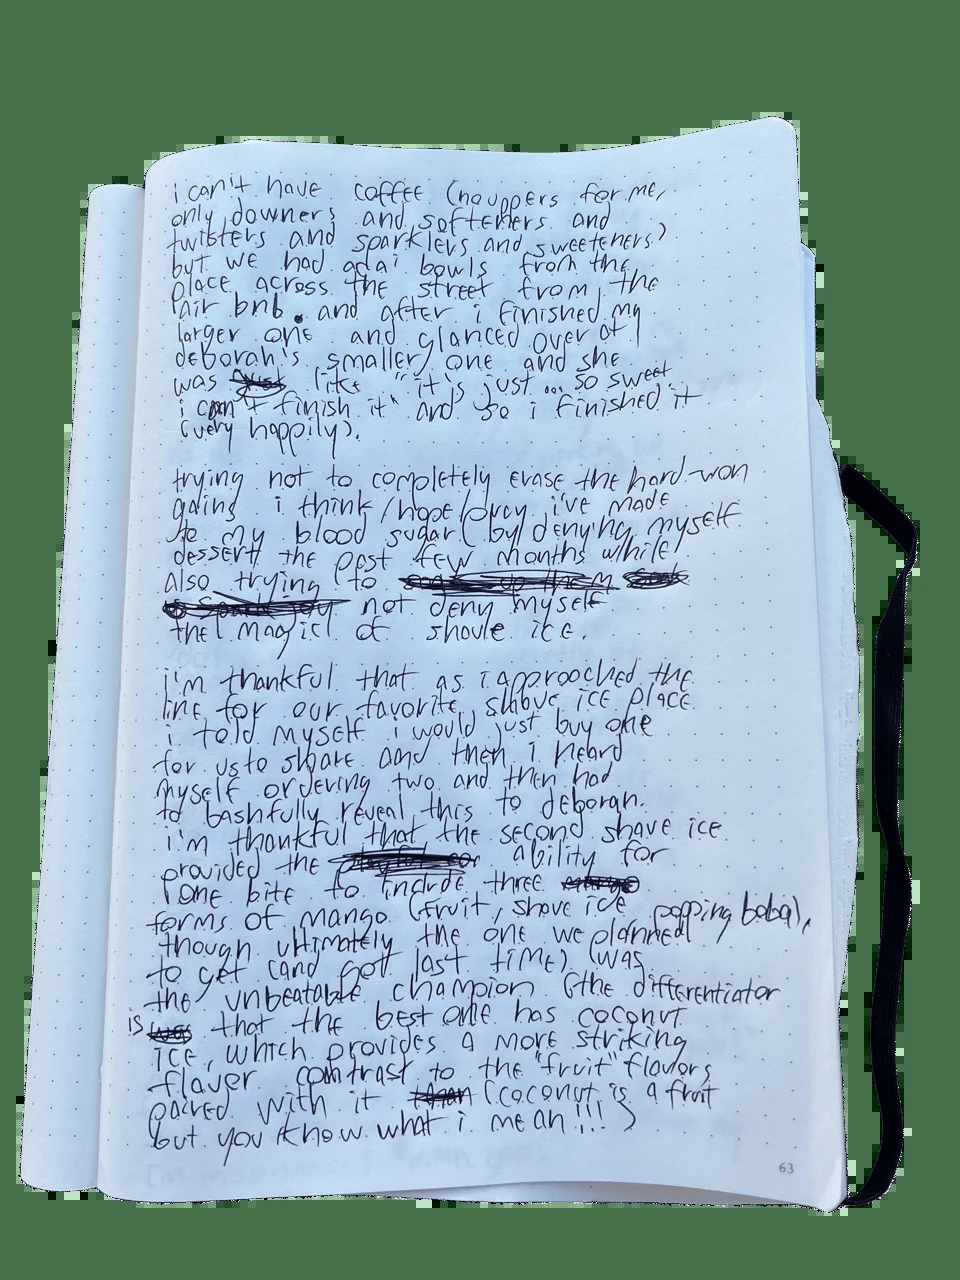 i can't have coffee (no uppers for me,
only downers and softeners and
twisters and sparklers and sweeteners)
but we had acai bowls from the
place across the street from the
air bnb. and after i finished my
larger one and glanced over at
deborah's smaller one and she
was like "it's just... so sweet
i can't finish it" and so i finished it
(very happily).
trying not to completely erase the hard-won
gains i think/hope/pray i've made
to my blood sugar (by denying myself
dessert) the past few months while
also trying to
not deny myself
the magic of shave ice.
i'm thankful that as i approached the
line for our favorite shave ice place
i told myself i would just buy one
for us to share and then i heard
myself ordering two and then had
to bashfully reveal this to deborah.
i'm thankful that the second shave ice
provided the ability for
one bite to include three
forms of mango (fruit, shave ice, popping boba),
though ultimately the one we planned
to get (and got last time) was
the unbeatable champion (the differentiator
is that the best one has coconut
ice, which provides a more striking
flavor contrast to the "fruit" flavors
paired with it (coconut is a fruit
but you know what i mean!!!)
63